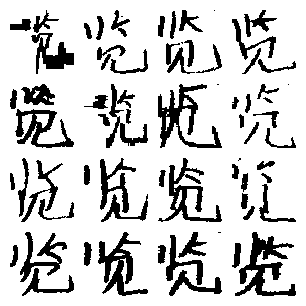 览览览览
览览览览
览览览览
览览览览